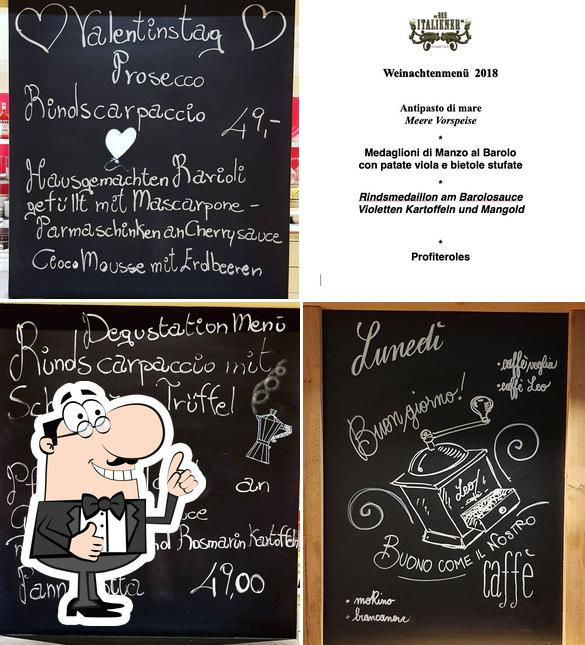 Valentinstag
Prosecco
Rindscarpaccio 49,-
Hausgemachten Ravioli
gefüllt mit Mascarpone -
Parmaschinken an Cherrysauce
Cioco Mousse mit Erdbeeren
DER
ITALIENER
Weinachtenmenü 2018
Antipasto di mare
Meere Vorspeise
*
Medaglioni di Manzo al Barolo
con patate viola e bietole stufate
*
Rindsmedaillon am Barolosauce
Violetten Kartoffeln und Mangold
*
Profiteroles
Degustation Menü
Rindscarpaccio mit
Trüffel
an
Rosmarin Kartoffeln
49,00
Lunedì
• caffè voglia
• caffè Leo
Buongiorno!
Leo
BUONO COME IL NOSTRO
caffè
• moKino
• biancaneve